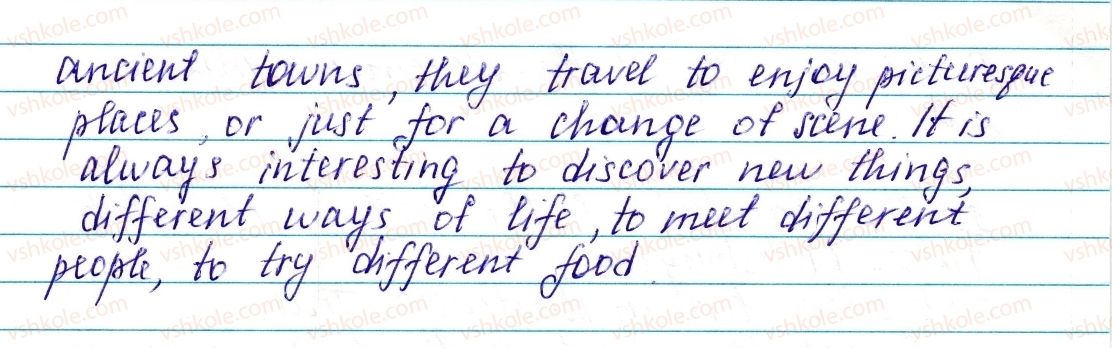 ancient towns, they travel to enjoy picturesque
places, or just for a change of scene. It is
always interesting to discover new things,
different ways of life, to meet different
people, to try different food